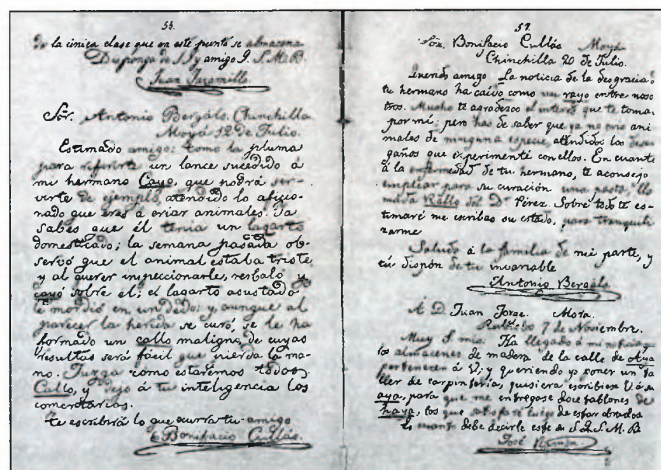 53.
de la única clase que en este punto se almacena
Disponga de S. S. y amigo Q. S. M. B.
Juan Jaramillo
Sor. Antonio Bergáls. Chinchilla
Moyá 12 de Julio.
Estimado amigo: tomo la pluma
para referirte un lance sucedido á
mi hermano Cayo, que podrá ser-
virte de ejemplo, atendido lo aficio-
nado que eres á criar animales. Ya
sabes que él tenía un lagarto
domesticado; la semana pasada ob-
servó que el animal estaba triste
y al querer inspeccionarle, resbaló y
cayó sobre él; el lagarto asustado
le mordió en un dedo; y aunque al
parecer la herida se curó, se le ha
formado un callo maligno de cuyas
resultas será fácil que pierda la ma-
no. Juzga como estaremos todos,
Callo, y dejo á tu inteligencia los
comentarios.
Te escribirá lo que ocurra tu amigo
Bonifacio Cullás
Sor. Bonifacio Cullás Moyá
Chinchilla 20 de Julio.
Querido amigo La noticia de la desgracia de
tu hermano ha caido como un rayo entre noso
tros. Mucho te agradezco el interés que te tomas
por mi; pero has de saber que ya no crio ani
males de ninguna especie atendidos los desen
gaños que experimenté con ellos. En cuanto
á la enfermedad de tu hermano, te aconsejo
emplear para su curación una pasta, lla
mada Rallo del Dr. Pérez. Sobre todo te es-
timaré me escribas su estado, para tranquili
zarme
Saluda á la familia de mi parte, y
tú dispón de tu invariable
Antonio Bergáls
Á D. Juan Jorge. Mora.
7 de Noviembre.
Muy S. mio. Ha llegado á mi noticia
los almacenes de madera de la calle de
pertenecen á V; y queriendo yo poner un ta
ller de carpintería, quisiera escribiese V. á su
aya, para que me entregase doce tablones de
haya, los que satisfaré luego de estar
debe decirle este su S. S. Q. S. M. B.
José